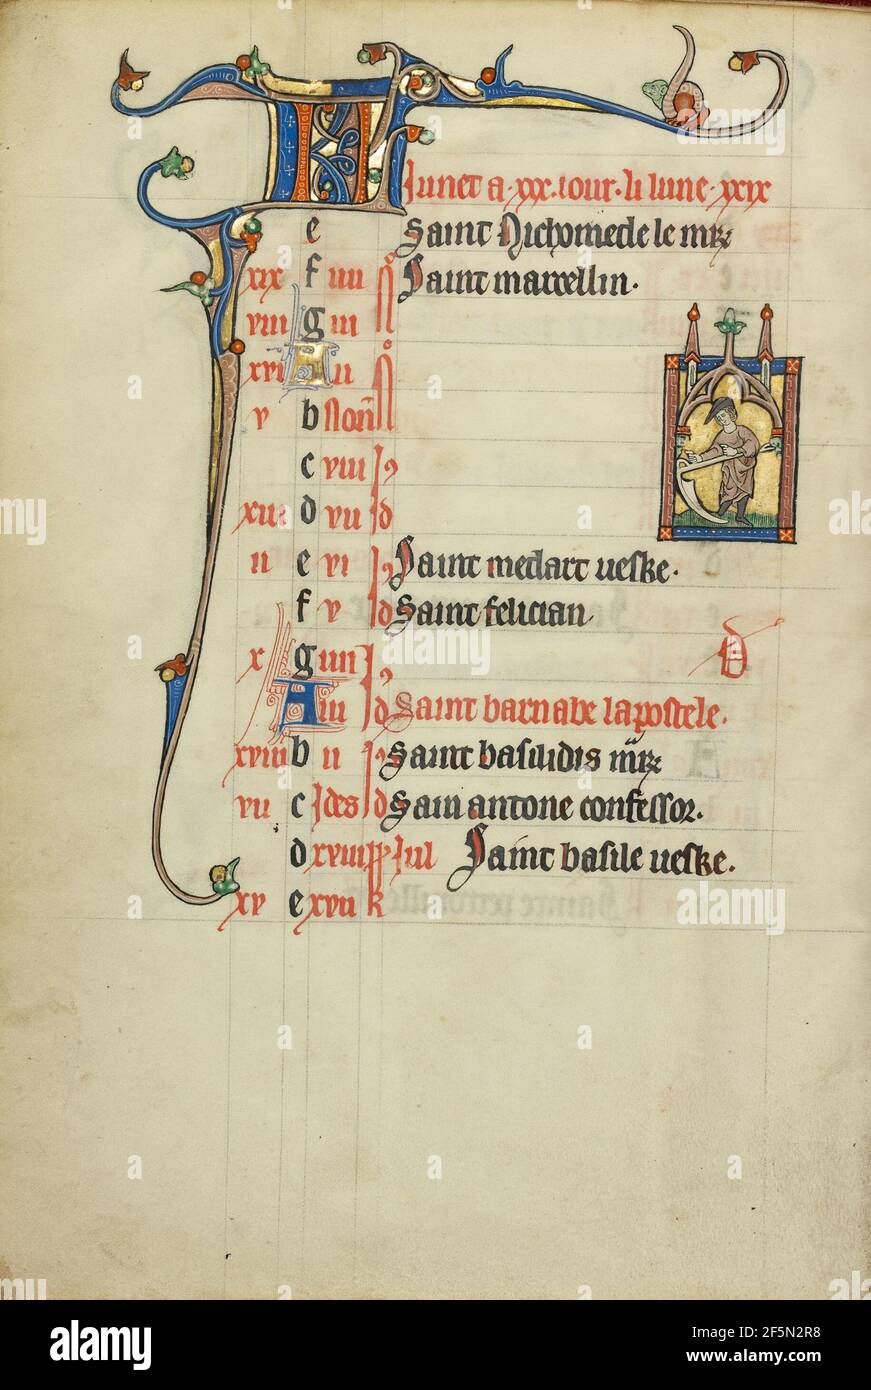 KL Junet a · xxx · iour · li lune · xxix
e Saint Nichomede le mr
xix f iiii N Saint marcellin ·
viii g iii N
xvi A ii N
v b Non
c viii J
xiii d vii d
ii e vi J Saint medart veske ·
f v d Saint felician
x g iiii J D
A iii d Saint barnabe lapostele ·
xviii b ii J Saint basilidis mr
vii c Jdes d Sain antone confessor ·
d xviii kl Jul Saint basile veske ·
xv e xvii k
alamy
Image ID: 2F5N2R8
www.alamy.com